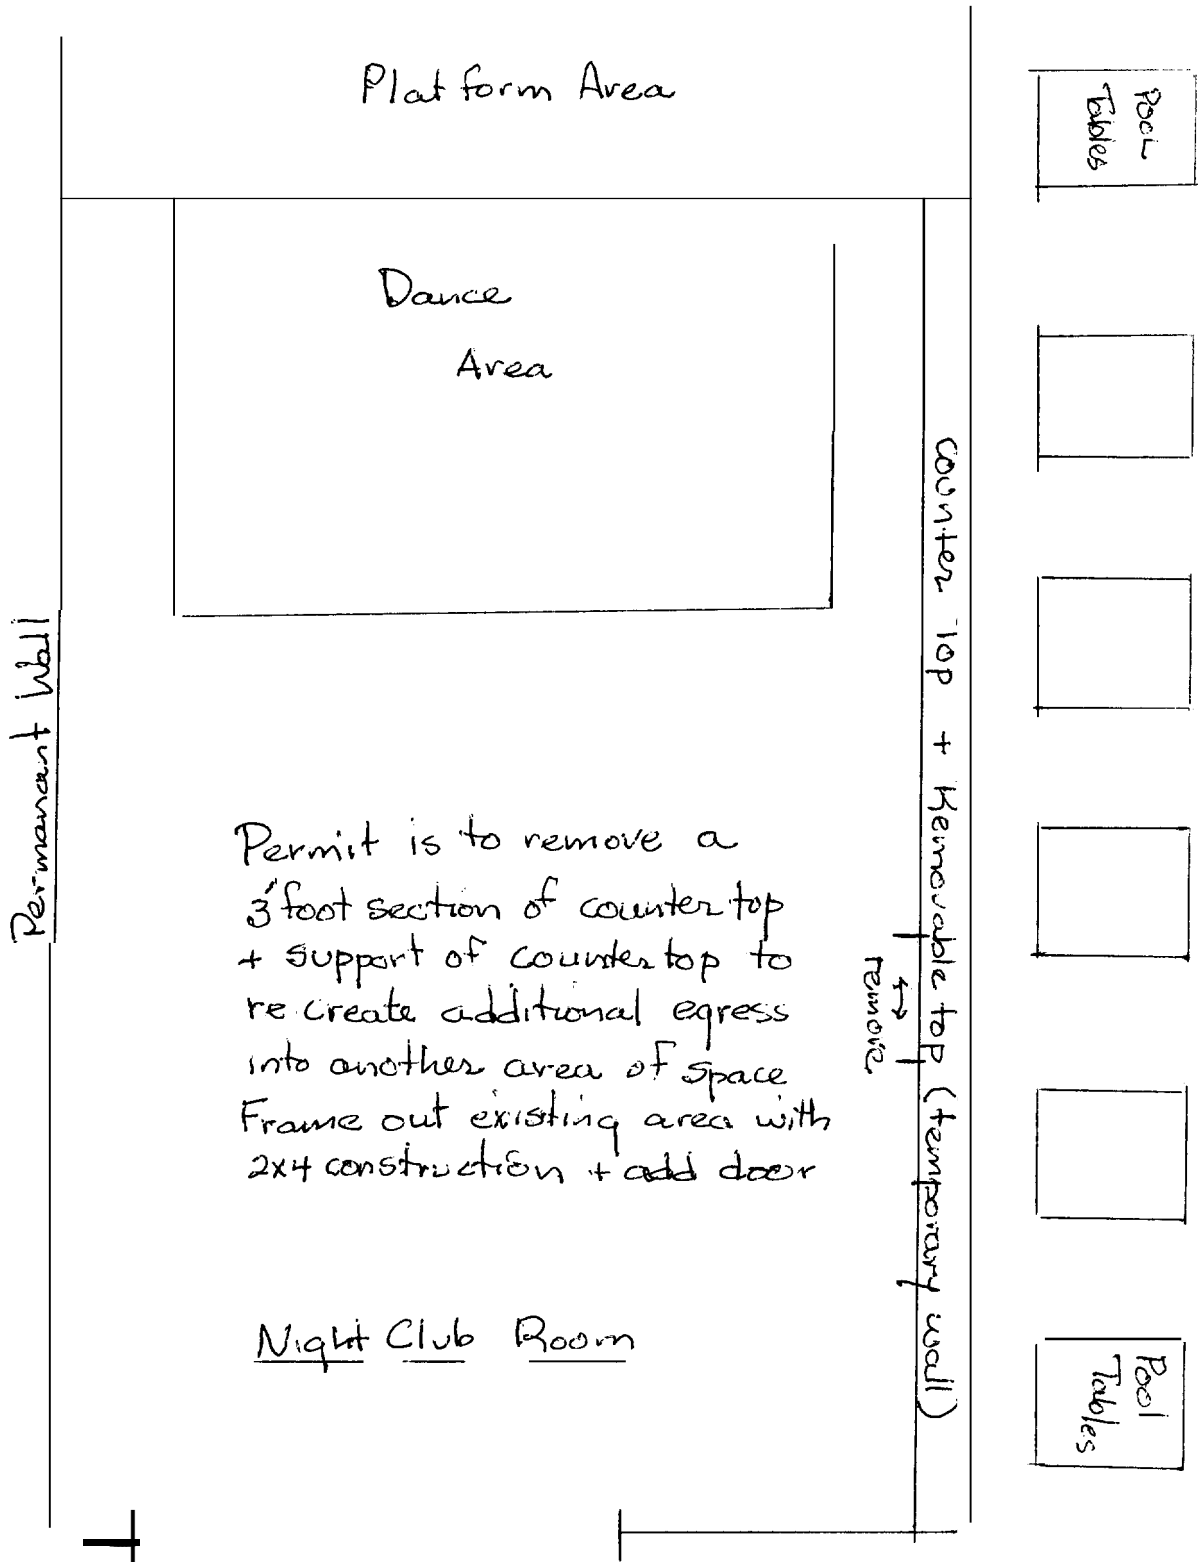 Platform Area
Pool
Tables
Dance
Area
counter Top + Removable top (temporary wall)
Permanant Wall
Permit is to remove a
3' foot section of counter top
+ support of counter top to
re create additional egress
into another area of space
Frame out existing area with
2x4 construction + add door
remove
Night Club Room
Pool
Tables